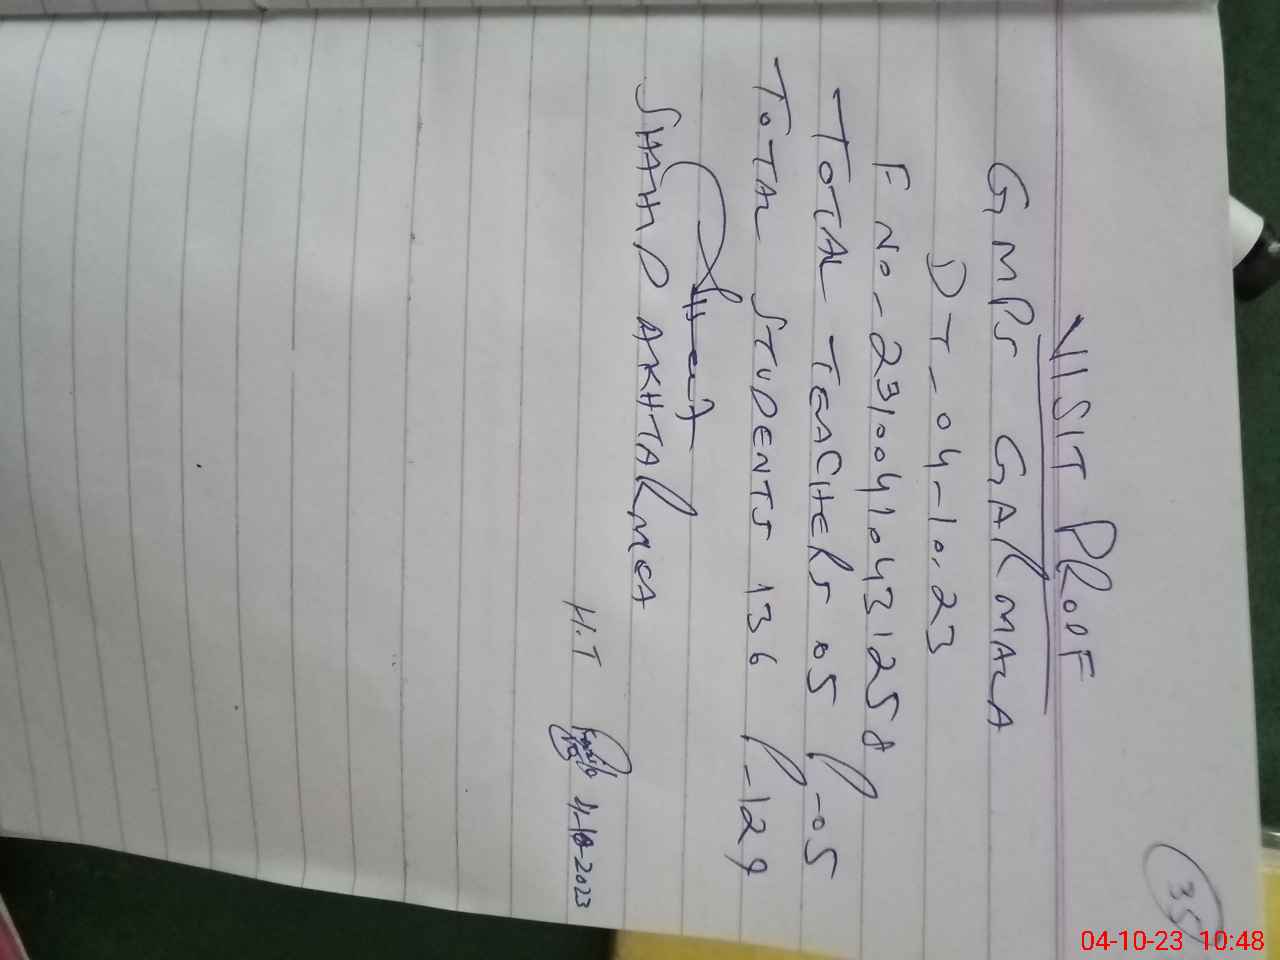 35
VISIT PROOF
GMPS GARMALA
DT - 04-10.23
F NO - 23100410431258
TOTAL TEACHERS 05 P-05
TOTAL STUDENTS 136 P-129
SHAHID AKHTAR MEA
H.T
4-10-2023
04-10-23 10:48